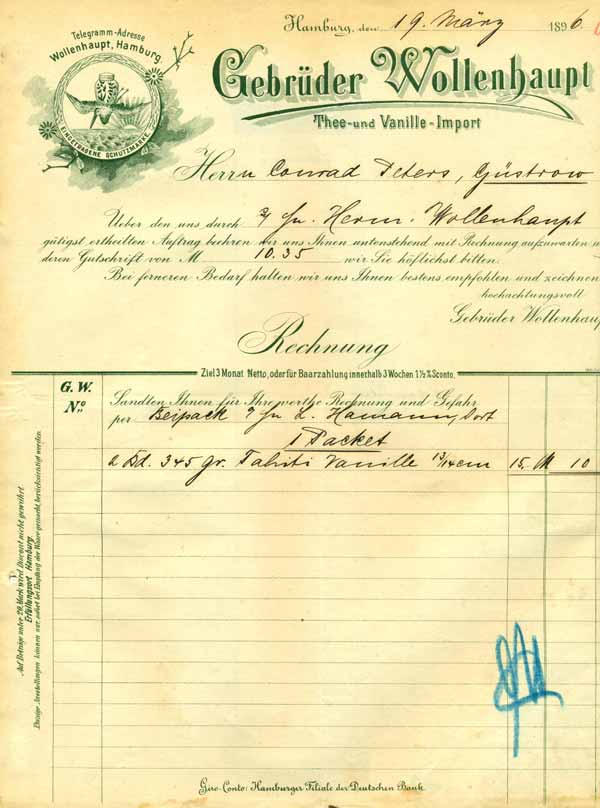 Telegramm-Adresse
Wollenhaupt, Hamburg.
EINGETRAGENE SCHUTZMARKE.
Hamburg, den 19. März 1896.
Gebrüder Wollenhaupt
Thee- und Vanille-Import
Herrn Conrad Peters, Güstrow
Ueber den uns durch Hn. Herm. Wollenhaupt
gütigst ertheilten Auftrag beehren wir uns Ihnen untenstehend mit Rechnung aufzuwarten u
deren Gutschrift von M 10.35 wir Sie höflichst bitten.
Bei fernerem Bedarf halten wir uns Ihnen bestens empfohlen und zeichnen
hochachtungsvoll
Gebrüder Wollenhau
Rechnung
Ziel 3 Monat Netto, oder für Baarzahlung innerhalb 3 Wochen 1½ % Sconto.
G. W.
No.
Sandten Ihnen für Ihre werthe Rechnung und Gefahr
per Beipack Hn L. Hamann, dort
1 Packet
a Bd. 345 gr. Tahiti Vanille 13/14 cm 15. M 10
Auf Beträge unter 20 Mark wird Discont nicht gewährt.
Erfüllungsort Hamburg.
Etwaige Ausstellungen können nur sofort bei Empfang der Waare gemacht, berücksichtigt werden.
Giro-Conto: Hamburger Filiale der Deutschen Bank.